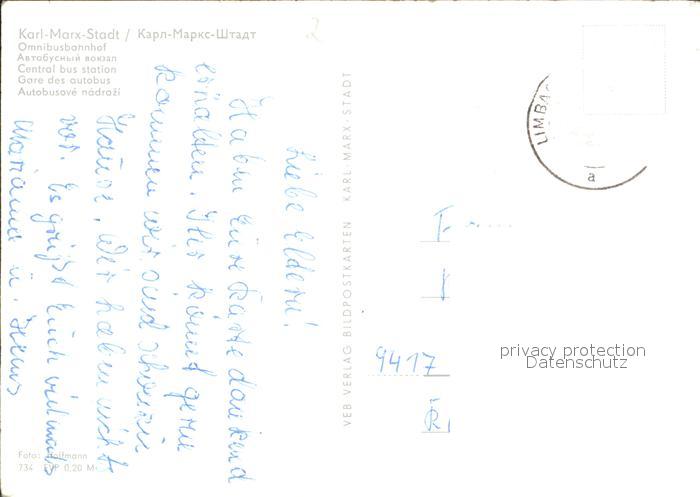 Karl-Marx-Stadt / Карл-Маркс-Штадт
Omnibusbahnhof
Автобусный вокзал
Central bus station
Gare des autobus
Autobusové nádraží
Liebe Eltern!
Haben Eure Karte dankend
erhalten. Ihr könnt gerne
kommen wir sind schon
Hause. Wir haben nichts
vor. Es grüßt Euch vielmals
Marianne u. Heinz
Foto: Hoffmann
734 EVP 0,20 M
VEB VERLAG BILDPOSTKARTEN KARL-MARX-STADT
LIMBA
a
9417
privacy protection
Datenschutz